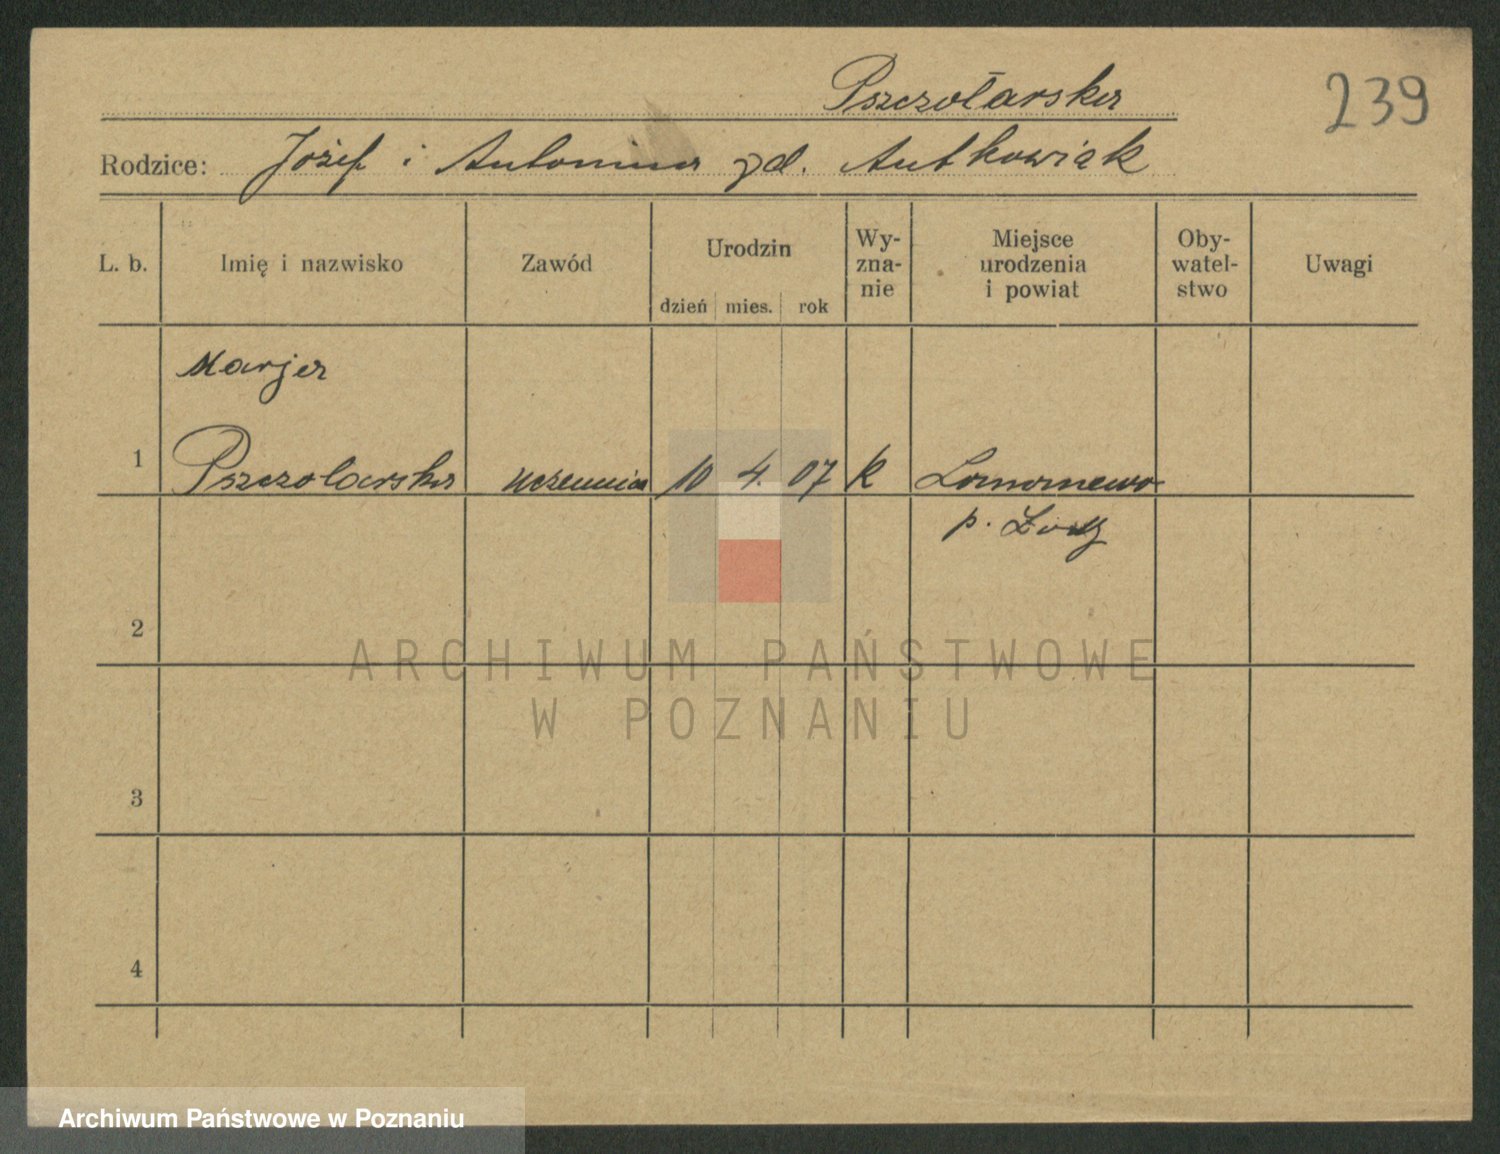 Pszczołarska
239
Rodzice: Józef i Antonina zd. Antkowiak
L. b.
Imię i nazwisko
Zawód
Urodzin
dzień mies. rok
Wy-
zna-
nie
Miejsce
urodzenia
i powiat
Oby-
watel-
stwo
Uwagi
Marja
1 Pszczolarska uczennica 10 4. 07 k
p. Łódź
2
ARCHIWUM PAŃSTWOWE
W POZNANIU
3
4
Archiwum Państwowe w Poznaniu